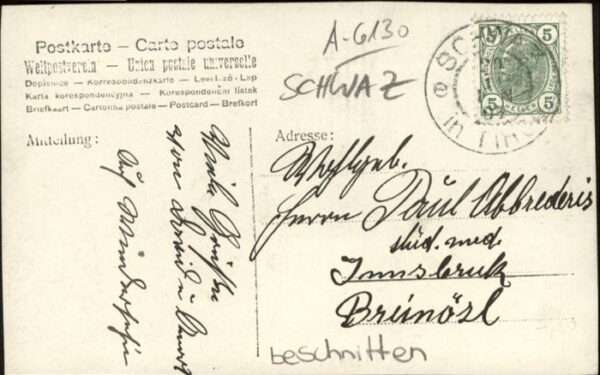 Postkarte – Carte postale
Weltpostverein – Union postale universelle
Dopisnice – Korrespondenzkarte – Levelező-Lap
Karta korespondencyjna – Korespondenční lístek
Briefkaart – Cartolina postale – Postcard – Brefkort
A-6130
SCHWAZ
SCHWAZ
in TIROL
5 5
5 5
Mitteilung:
Viele Grüße
von
Auf Wiedersehn
Adresse:
Wohlgeb.
Herrn Paul Abbrederis
stud. med.
Innsbruck
Breinössl
beschnitten